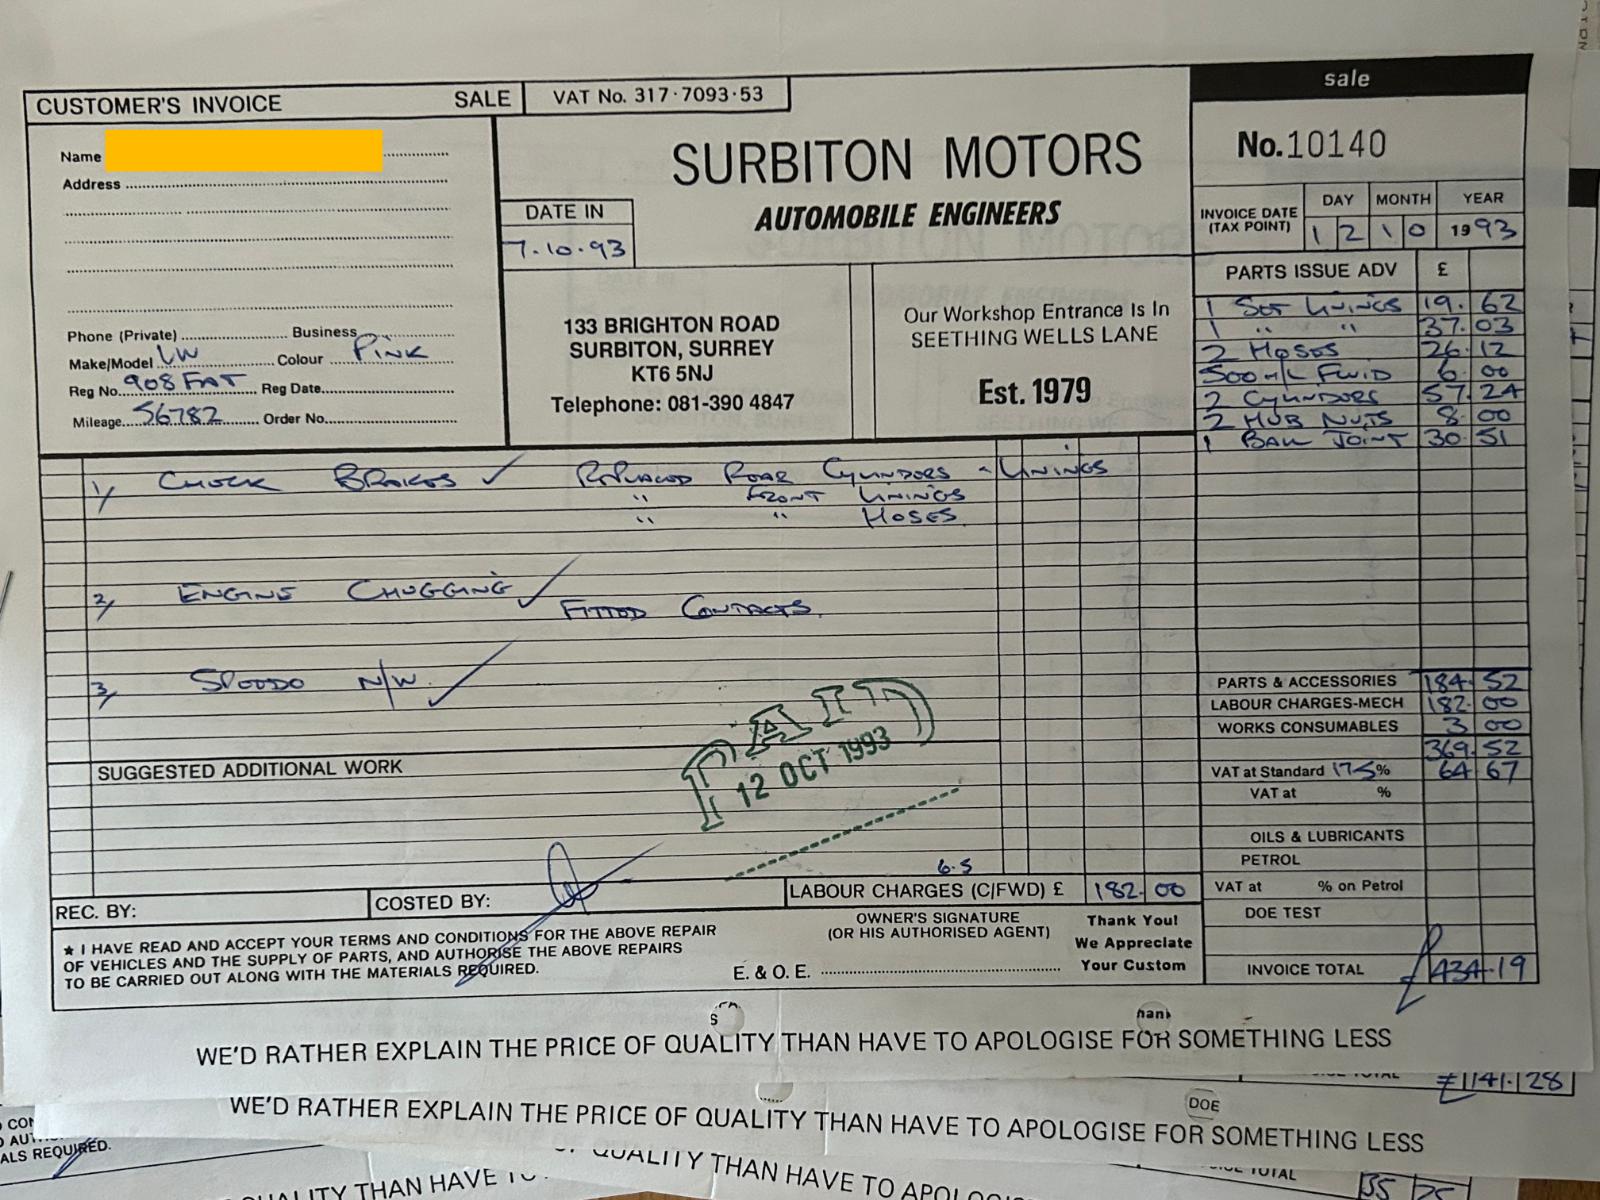 CUSTOMER'S INVOICE SALE
VAT No. 317·7093·53
Name
Address
Phone (Private) Business
Make/Model VW Colour PINK
Reg No. 908 FAT Reg Date
Mileage 56782 Order No.
DATE IN
7.10.93
SURBITON MOTORS
AUTOMOBILE ENGINEERS
133 BRIGHTON ROAD
SURBITON, SURREY
KT6 5NJ
Telephone: 081-390 4847
Our Workshop Entrance Is In
SEETHING WELLS LANE
Est. 1979
sale
No. 10140
INVOICE DATE (TAX POINT)
DAY MONTH YEAR
12 10 1993
PARTS ISSUE ADV £
1 SET LININGS 19.62
1 " " 37.03
2 HOSES 26.12
500 m/L FLUID 6.00
2 CYLINDERS 57.24
2 HUB NUTS 8.00
1 BALL JOINT 30.51
1/ CHECK BRAKES ✓ REPLACED REAR CYLINDERS & LININGS
" FRONT LININGS
" " HOSES
2/ ENGINE CHUGGING ✓
FITTED CONTACTS.
3/ SPEEDO N/W ✓
PARTS & ACCESSORIES 184.52
LABOUR CHARGES-MECH 182.00
WORKS CONSUMABLES 3 00
369.52
VAT at Standard 17.5% 64 67
VAT at %
OILS & LUBRICANTS
PETROL
VAT at % on Petrol
DOE TEST
INVOICE TOTAL £434.19
SUGGESTED ADDITIONAL WORK
PAID
12 OCT 1993
6.5
REC. BY:
COSTED BY:
LABOUR CHARGES (C/FWD) £ 182.00
★ I HAVE READ AND ACCEPT YOUR TERMS AND CONDITIONS FOR THE ABOVE REPAIR
OF VEHICLES AND THE SUPPLY OF PARTS, AND AUTHORISE THE ABOVE REPAIRS
TO BE CARRIED OUT ALONG WITH THE MATERIALS REQUIRED.
OWNER'S SIGNATURE
(OR HIS AUTHORISED AGENT)
E. & O. E.
Thank You!
We Appreciate
Your Custom
WE'D RATHER EXPLAIN THE PRICE OF QUALITY THAN HAVE TO APOLOGISE FOR SOMETHING LESS
£1141.28
DOE
WE'D RATHER EXPLAIN THE PRICE OF QUALITY THAN HAVE TO APOLOGISE FOR SOMETHING LESS
ALS REQUIRED.
QUALITY THAN HAVE TO APOLO
TOTAL
QUALITY THAN HAVE TO